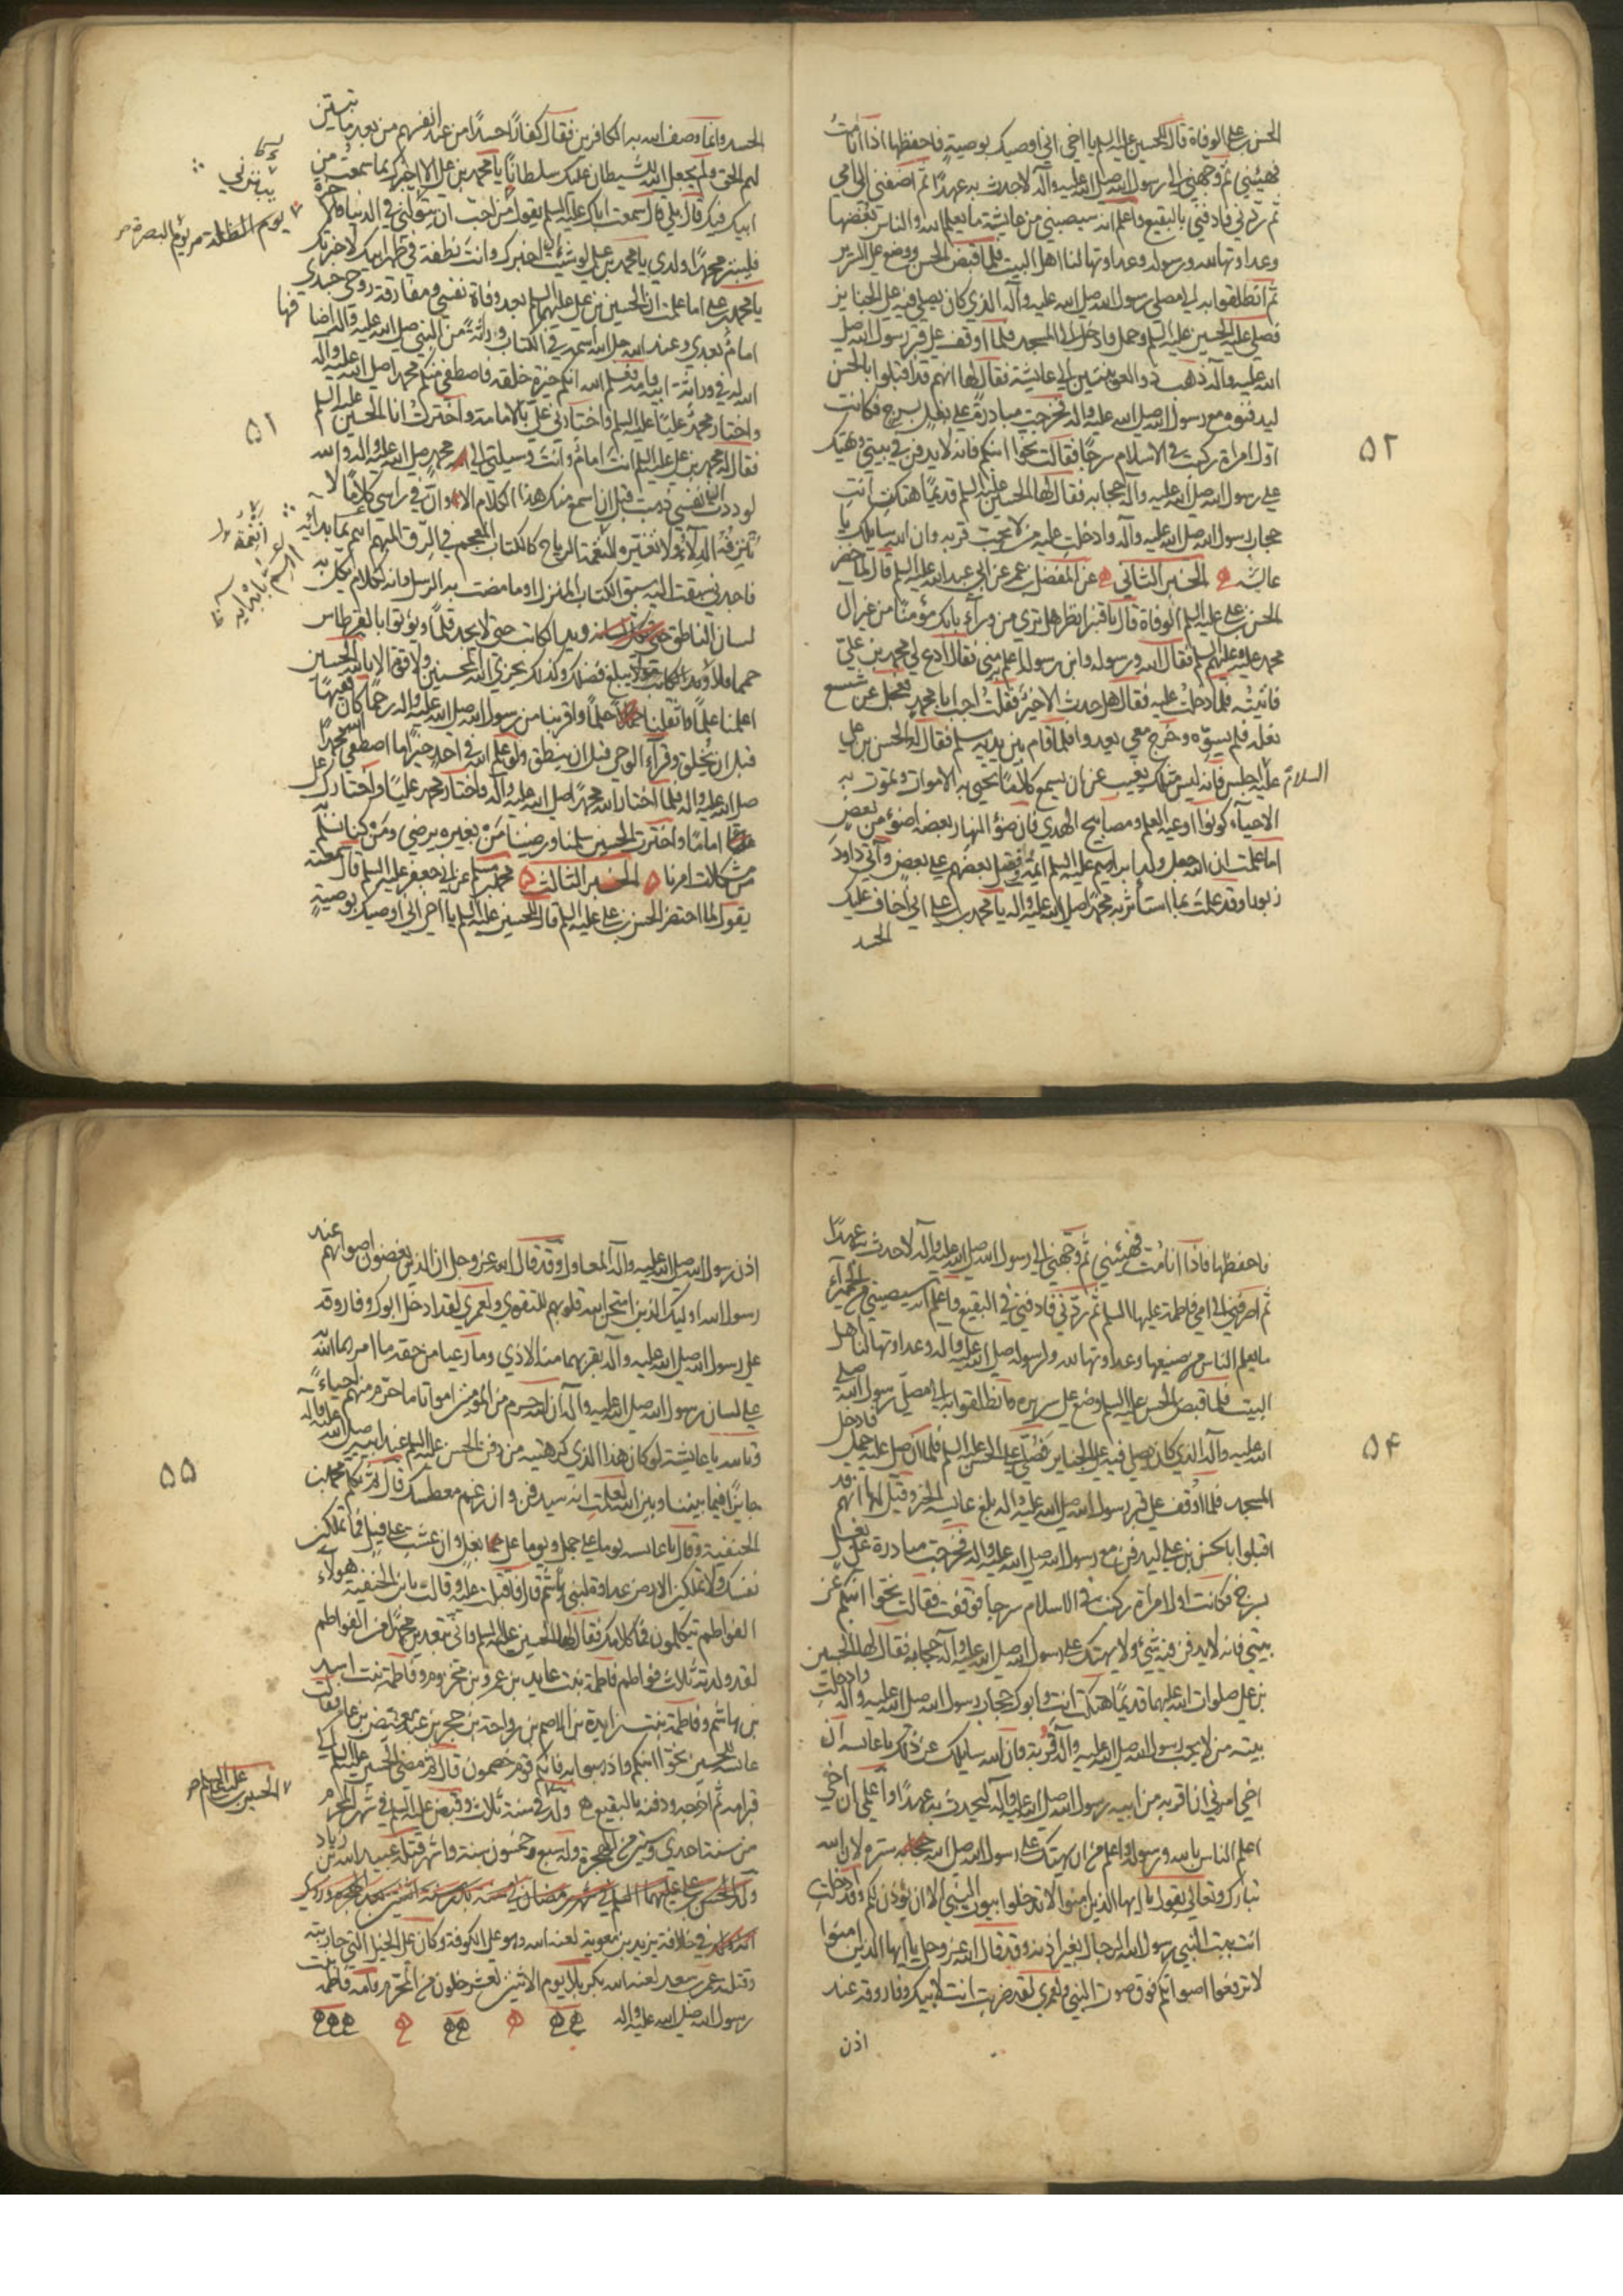 الحسن بن علي الوفاة قال للحسين عليه السلم يا اخي اني اوصيك بوصية فاحفظها اذا انا مت
فهيئني ثم وجهني الى رسول الله صلى الله عليه وآله لاحدث به عهدا ثم اصرفني الى امي
ثم ردني فادفني بالبقيع واعلم انه سيصيبني من عايشة ما يعلم الله والناس بغضها
وعداوتها لله ورسوله وعداوتها لنا اهل البيت فلما قبض الحسن ووضع على السرير
ثم انطلقوا به الى مصلى رسول الله صلى الله عليه وآله الذي كان يصلي فيه على الجنايز
فصلى عليه الحسين عليه السلم وحمل وادخل الى المسجد فلما اوقف على قبر رسول الله صلى
الله عليه وآله ذهب ذو العوينتين الى عايشة فقال لها انهم قد اقبلوا بالحسن
ليدفنوه مع رسول الله صلى الله عليه واله فخرجت مبادرة على بغل بسرج فكانت
اول امراة ركبت في الاسلام سرجا فقالت نحوا ابنكم فانه لا يدفن في بيتي ويهتك
على رسول الله صلى الله عليه وآله حجابه فقال لها الحسين عليه السلم قديما هتكت انت
حجاب رسول الله صلى الله عليه وآله وادخلت عليه من لا يحب قربه وان الله سايلك يا
عايشه ه الخبر الثاني ه عن المفضل بن عمر عن ابي عبد الله عليه السلم قال لما حضر
الحسن بن علي عليه السلم الوفاة قال يا قنبر انظر هل ترى من ورآء بابك مؤمنا من غير ال
محمد عليه وعليهم السلم فقال الله ورسوله وابن رسوله اعلم مني فقال ادع لي محمد بن علي
فاتيته فلما دخلت عليه فقال هل حدث الا خير فقلت اجب ابا محمد فعجل عن شسع
نعله فلم يسوه وخرج معي يعدوا فلما قام بين يديه سلم فقال له الحسن بن علي
السلام عليه اجلس فانه ليس مثلك يغيب عن ان يسمع كلاما يحيى به الاموات ويموت به
الاحيآء كونوا اوعية العلم ومصابيح الهدى فان ضؤ النهار بعضه اضوء من بعض
اما علمت ان الله جعل ولد ابراهيم عليه السلم ائمة وفضل بعضهم على بعض وآتى داود
زبورا وقد علمت بما استاثر به محمدا صلى الله عليه واله يا محمد بن علي اني اخاف عليك
الحسد
٥٢
الحسد وانما وصف الله به الكافرين فقال كفارا حسدا من عند انفسهم من بعد ما تبين
لهم الحق ولم يجعل الله للشيطان عليك سلطانا يا محمد بن علي الا اخبرك بما سمعت من
ابيك فيك قال بلى قال سمعت اباك عليه السلم يقول من احب ان يبرني في الدنيا والآخرة
فليبر محمدا ولدي يا محمد بن علي لو شئت ان اخبرك وانت نطفة في ظهر ابيك لاخبرتك
يا محمد بن علي اما علمت ان الحسين بن علي عليهما السلم بعد وفاة نفسي ومفارقة روحي جسدي
امام بعدي وعند الله جل اسمه في الكتاب وراثة من النبي صلى الله عليه واله اضافها
الله له في وراثة ابيه وامه فعلم الله انكم خيرة خلقه فاصطفى منكم محمدا صلى الله عليه واله
واختار محمد عليا عليه السلم واختارني علي بالامامة واخترت انا الحسين عليه السلم
فقال له محمد بن علي عليه السلم انت امام وانت وسيلتي الى محمد صلى الله عليه واله والله
لوددت ان نفسي ذهبت قبل ان اسمع منك هذا الكلام الا وان في راسي كلاما لا
تنزفه الدلاء ولا تغيره نغمة الرياح كالكتاب المعجم في الرق المنمنم اهم بابدائه
فاجدني سبقت اليه سبق الكتاب المنزل او ما مضت به الرسل وانه لكلام يكل به
لسان الناطق ويد الكاتب حتى لا يجد قلما ويؤتوا بالقرطاس
حمما ولا يبلغ فضلك وكذلك يجزي الله المحسنين ولا قوة الا بالله الحسين
اعلمنا علما واثقلنا حلما واقربنا من رسول الله صلى الله عليه واله رحما كان فقيها
قبل ان يخلق وقرآء الوحي قبل ان ينطق ولو علم الله في احد خيرا ما اصطفى محمدا
صلى الله عليه واله فلما اختار الله محمدا صلى الله عليه وآله واختار محمد عليا واختارك علي
اماما واخترت الحسين سلمنا ورضينا من بغيره يرضى ومن كنا نسلم به
من مشكلات امرنا ه الخبر الثالث ه محمد بن مسلم عن ابي جعفر عليه السلم قال سمعته
يقول لما احتضر الحسن بن علي عليه السلم قال للحسين عليه السلم يا اخي اني اوصيك بوصية
يوم الظلة من يوم البصرة
٥١
فاحفظها فاذا انا مت فهيئني ثم وجهني الى رسول الله صلى الله عليه وآله لاحدث به عهدا
ثم اصرفني الى امي فاطمة عليها السلم ثم ردني فادفني في البقيع واعلم انه سيصيبني من الحميراء
ما يعلم الناس من صنيعها وعداوتها لله ولرسوله صلى الله عليه واله وعداوتها لنا اهل
البيت فلما قبض الحسن عليه السلم وضع على سريره فانطلقوا به الى مصلى رسول الله صلى
الله عليه وآله الذي كان يصلي فيه على الجنايز فصلي على الحسن عليه السلم فلما ان صلي عليه حمل فادخل
المسجد فلما اوقف على قبر رسول الله صلى الله عليه واله بلغ عايشه الخبر وقيل لها انهم قد
اقبلوا بالحسن بن علي ليدفن مع رسول الله صلى الله عليه واله فخرجت مبادرة على بغل
بسرج فكانت اول امراة ركبت في الاسلام سرجا فوقفت فقالت نحوا ابنكم عن
بيتي فانه لا يدفن فيه شيء ولا يهتك على رسول الله صلى الله عليه وآله حجابه فقال لها الحسين
بن علي صلوات الله عليهما قديما هتكت انت وابوك حجاب رسول الله صلى الله عليه وآله وادخلت
بيته من لا يحب رسول الله صلى الله عليه وآله قربه وان الله سايلك عن ذلك يا عايشه ان
اخي امرني ان اقربه من ابيه رسول الله صلى الله عليه وآله ليحدث به عهدا واعلمي ان اخي
اعلم الناس بالله ورسوله واعلم من ان يهتك على رسول الله صلى الله ستره لان الله
تبارك وتعالى يقول يا ايها الذين امنوا لا تدخلوا بيوت النبي الا ان يؤذن لكم وقد ادخلت
انت بيت النبي رسول الله الرجال بغير اذنه وقد قال الله عز وجل يا ايها الذين امنوا
لا ترفعوا اصواتكم فوق صوت النبي ولعمري لقد ضربت انت لابيك وفاروقه عند
اذن
٥٤
اذن رسول الله صلى الله عليه وآله المعاول وقد قال الله عز وجل ان الذين يغضون اصواتهم عند
رسول الله اوليك الذين امتحن الله قلوبهم للتقوى ولعمري لقد ادخل ابوك وفاروقه
على رسول الله صلى الله عليه وآله بقربهما منه الاذى وما رعيا من حقه ما امرهما الله به
على لسان رسول الله صلى الله عليه واله ان الله حرم من المؤمنين امواتا ما حرم منهم احياء
وتالله يا عايشة لو كان هذا الذي كرهتيه من دفن الحسن عليه السلم عند ابيه صلى الله عليه وآله
جايزا فيما بيننا وبين الله لعلمت انه سيدفن وان رغم معطسك قال ثم تكلم محمد بن
الحنفية وقال يا عايشه يوما على جمل ويوما على بغل وان عشت على فيل فما تملكين
نفسك ولا تملكين الارض عداوة لبني هاشم قال فاقبلت عليه وقالت يابن الحنفية هولاء
الفواطم يتكلمون فما كلامك فقال لها الحسين عليه السلم واني تبعدين محمدا من الفواطم
لقد ولدته ثلاث فواطم فاطمة بنت عايد بن عمرو بن مخزوم وفاطمة بنت اسد
بن هاشم وفاطمة بنت زايدة بن الاصم بن رواحة بن حجر بن عبد معيص بن عامر فقالت
عايشه للحسين نحوا ابنكم واذهبوا به فانكم قوم خصمون قال فمضى الحسين عليه السلم الى
قبر امه ثم اخرجه ودفنه بالبقيع ه ولد في سنة ثلاث وقبض عليه السلم في شهر المحرم
من سنة احدى وستين من الهجرة وله سبع وخمسون سنة واشهر قتله عبيد الله بن زياد
ولد الحسن بن علي عليهما السلم في شهر رمضان
في خلافة يزيد بن معوية لعنه الله وهو على الكوفة وكان على الخيل التي حاربته
وقتلته عمر بن سعد لعنه الله بكربلا يوم الاثنين لعشر خلون من المحرم وامه فاطمة بنت
رسول الله صلى الله عليه واله
الحسين بن علي عليهما السلم
٥٥